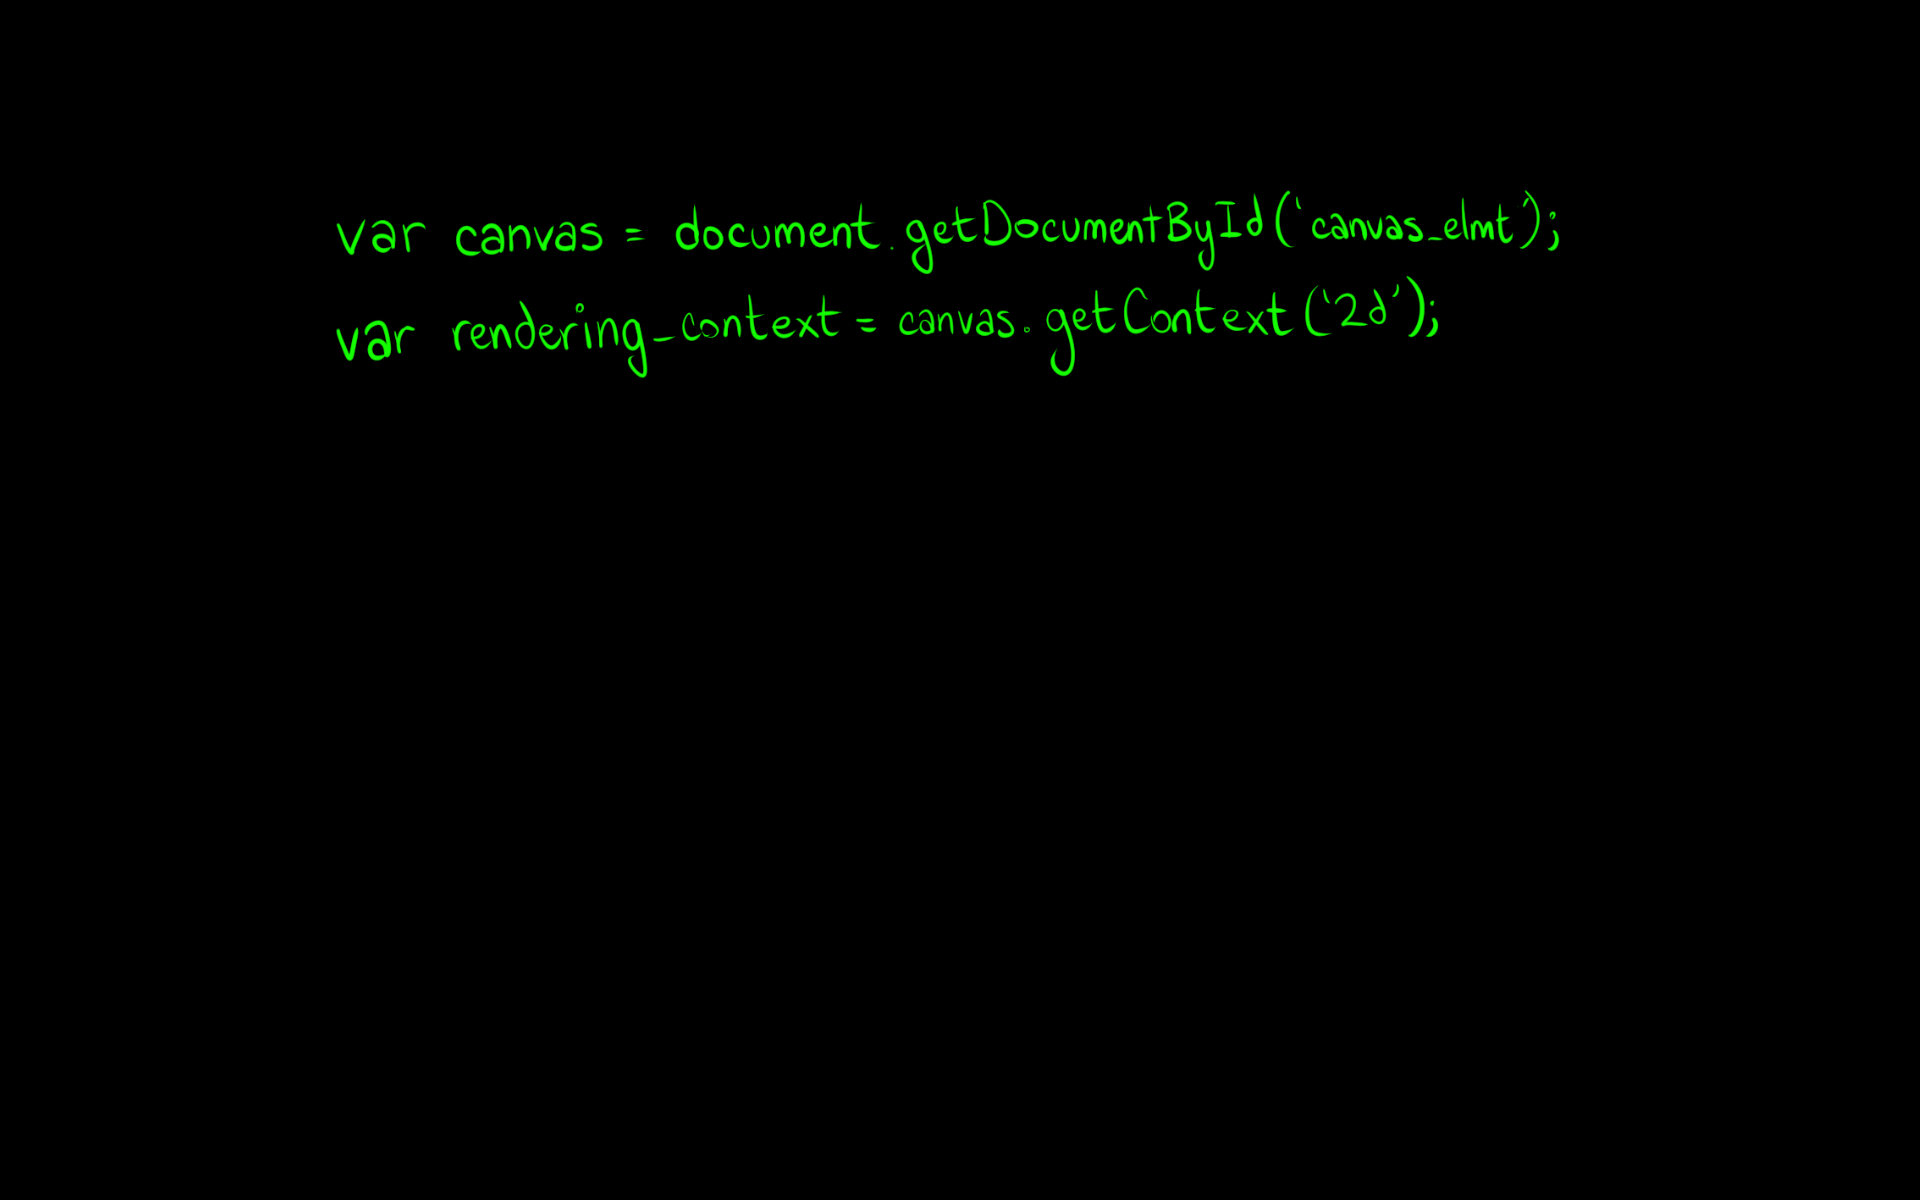 var canvas = document.getDocumentById('canvas_elmt');
var rendering_context = canvas.getContext('2d');